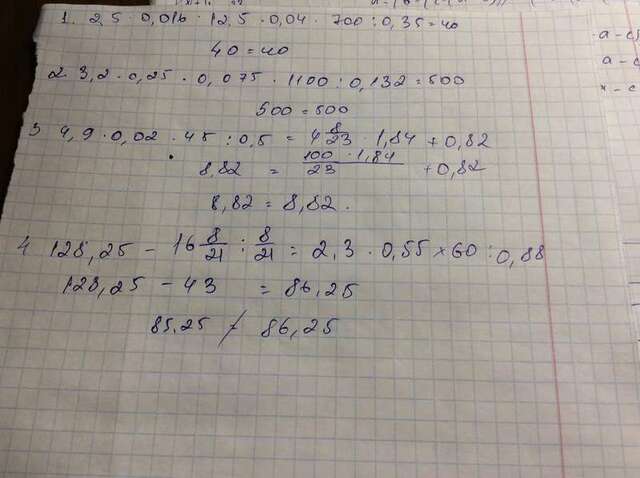 1. 2,5 · 0,016 · 12,5 · 0,04 · 700 : 0,35 = 40
40 = 40
2. 3,2 · 0,25 · 0,075 · 1100 : 0,132 = 500
500 = 500
3 4,9 · 0,02 · 45 : 0,5 = 4 8/23 · 1,84 + 0,82
8,82 = 100 · 1,84 / 23 + 0,82
8,82 = 8,82.
4 128,25 - 16 8/21 : 8/21 = 2,3 · 0,55 × 60 : 0,88
128,25 - 43 = 86,25
85,25 ≠ 86,25